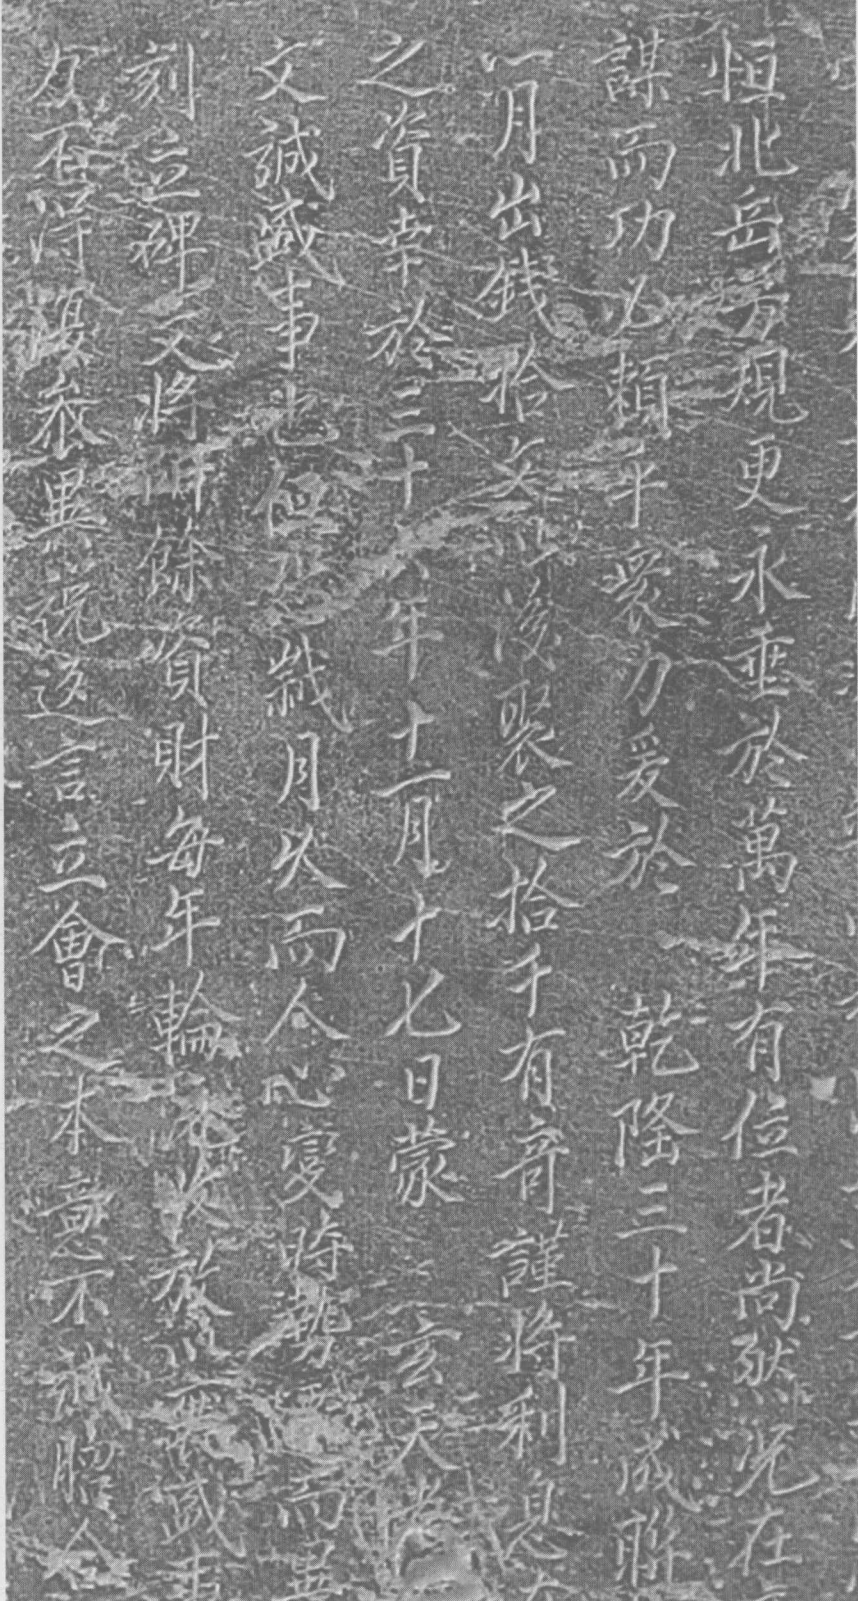 恒北岳芳規更永垂於萬年有位者尚然况在
謀而功必賴乎衆力爰於 乾隆三十年成
一月出錢拾文後聚之拾千有奇謹將利息
之資幸於三十年十一月十七日蒙 玄天
文誠盛事也但歲月久而人心變時勢而異
刻立碑文將所餘資財每年輪放
不得懷異説返言立會之本意不